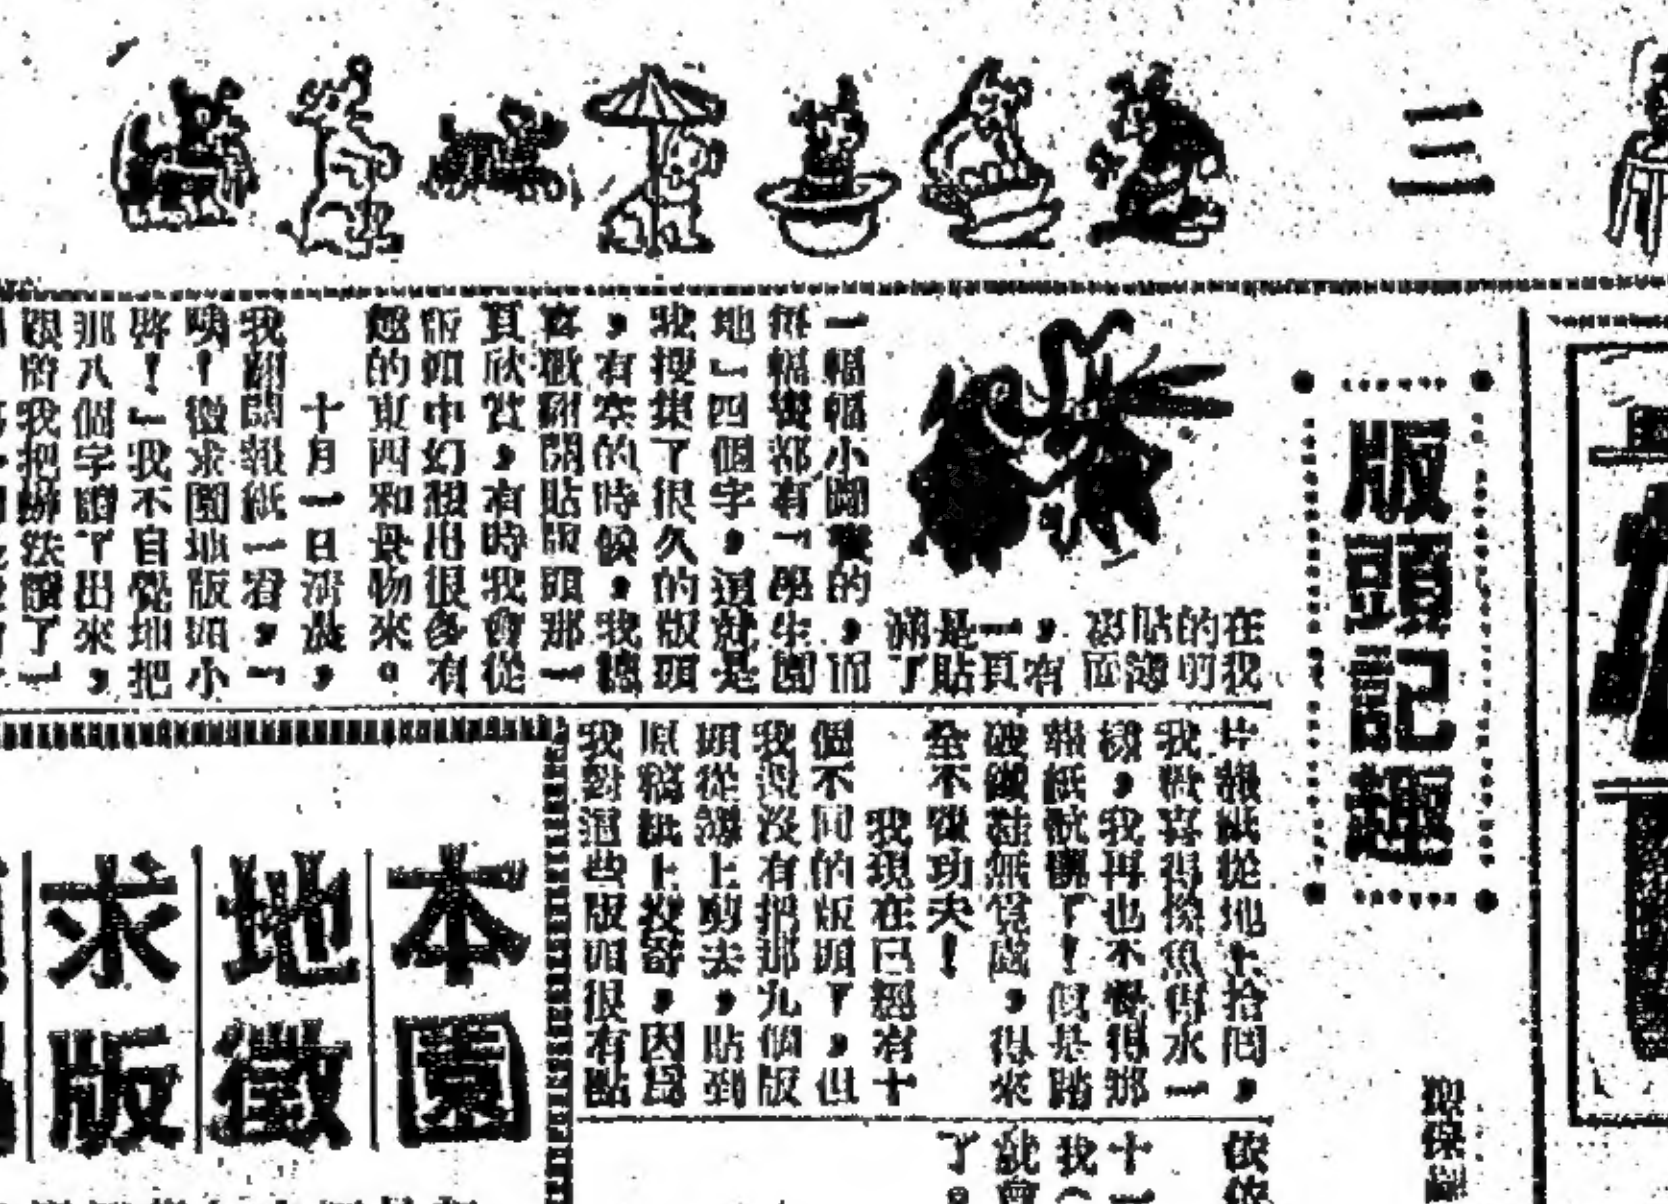 三
版頭記趣
在我
的剪
貼簿
裏面
，有
一頁
是貼
滿了
一幅幅小圖案的，而
每幅都有「學生園
地」四個字，這就是
我搜集了很久的版頭
，有空的時候，我總
喜歡翻開貼版頭那一
頁欣賞，有時我會從
版頭中幻想出很多有
趣的東西和事物來。
十月一日清晨，
我翻開報紙一看，「
咦！徵求園地版頭小
啓！」我不自覺地把
那八個字讀了出來，
跟着我把辦法讀了一
片報紙從地上拾囘，
我歡喜得像魚得水一
樣，我再也不覺得那
報紙骯髒了！但是踏
破鐵鞋無覓處，得來
全不復功夫！
我現在已經有十
個不同的版頭了，但
我還沒有把那九個版
頭從簿上剪去，貼到
原稿紙上投寄，因爲
我對這些版頭很有點
十
我
就會
了。
本園
地徵
求版